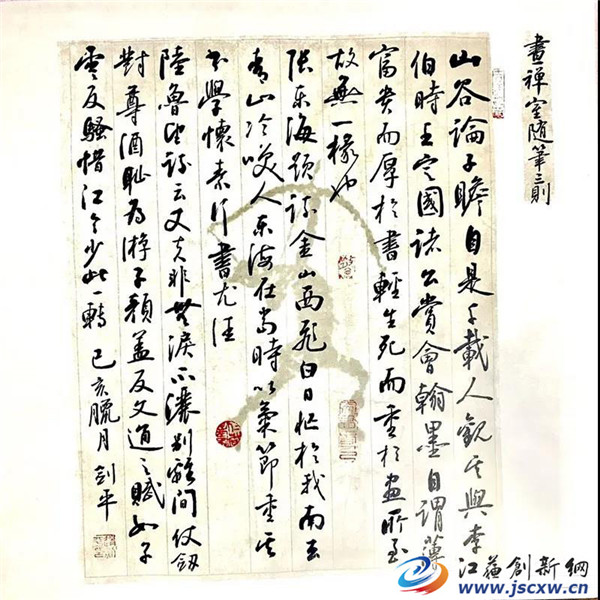 畫禪室隨筆三則
山谷論子瞻自是千載人觀其與李
伯時王定國諸公賞會翰墨自謂薄
富貴而厚於書輕生死而重於畫所至
故無一椽也
張東海題詩金山西飛白日忙於我南去
青山冷笑人東海在當時以氣節重其
書學懷素行書尤佳
陸魯望詩云丈夫非無淚不灑別離間仗劔
對尊酒恥為游子顏蓋反文通之賦如子
雲反騷惜江令少此一轉 己亥臘月 劍平
江苏创新网
www.jscxw.com.cn